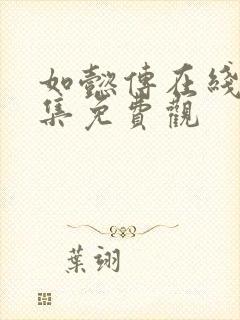 如懿傳在綫
集免費觀
葉翊